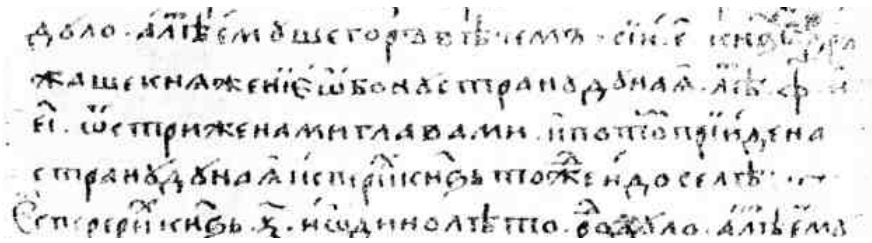 дꙋло · а лⷮѣ емꙋ шегоръ вѣчемъ · сїи · е҃ · кнѧѕь дръ
жаше кнѧженїе ѡбонꙋ странꙋ дꙋнаѧ · лⷮѣ · ф҃ · и
еі҃ · ѡстриженами главами · и потоⷨ прїиде на
странꙋ дꙋнаѧ исперїⷯ кнѕ҃ь тоⷤⷣе и доселѣ ·
Есперерїⷯ кнѕ҃ь · ѯ҃ · и ѡдино лѣто · роⷣ дꙋло · а лⷮѣ емꙋ